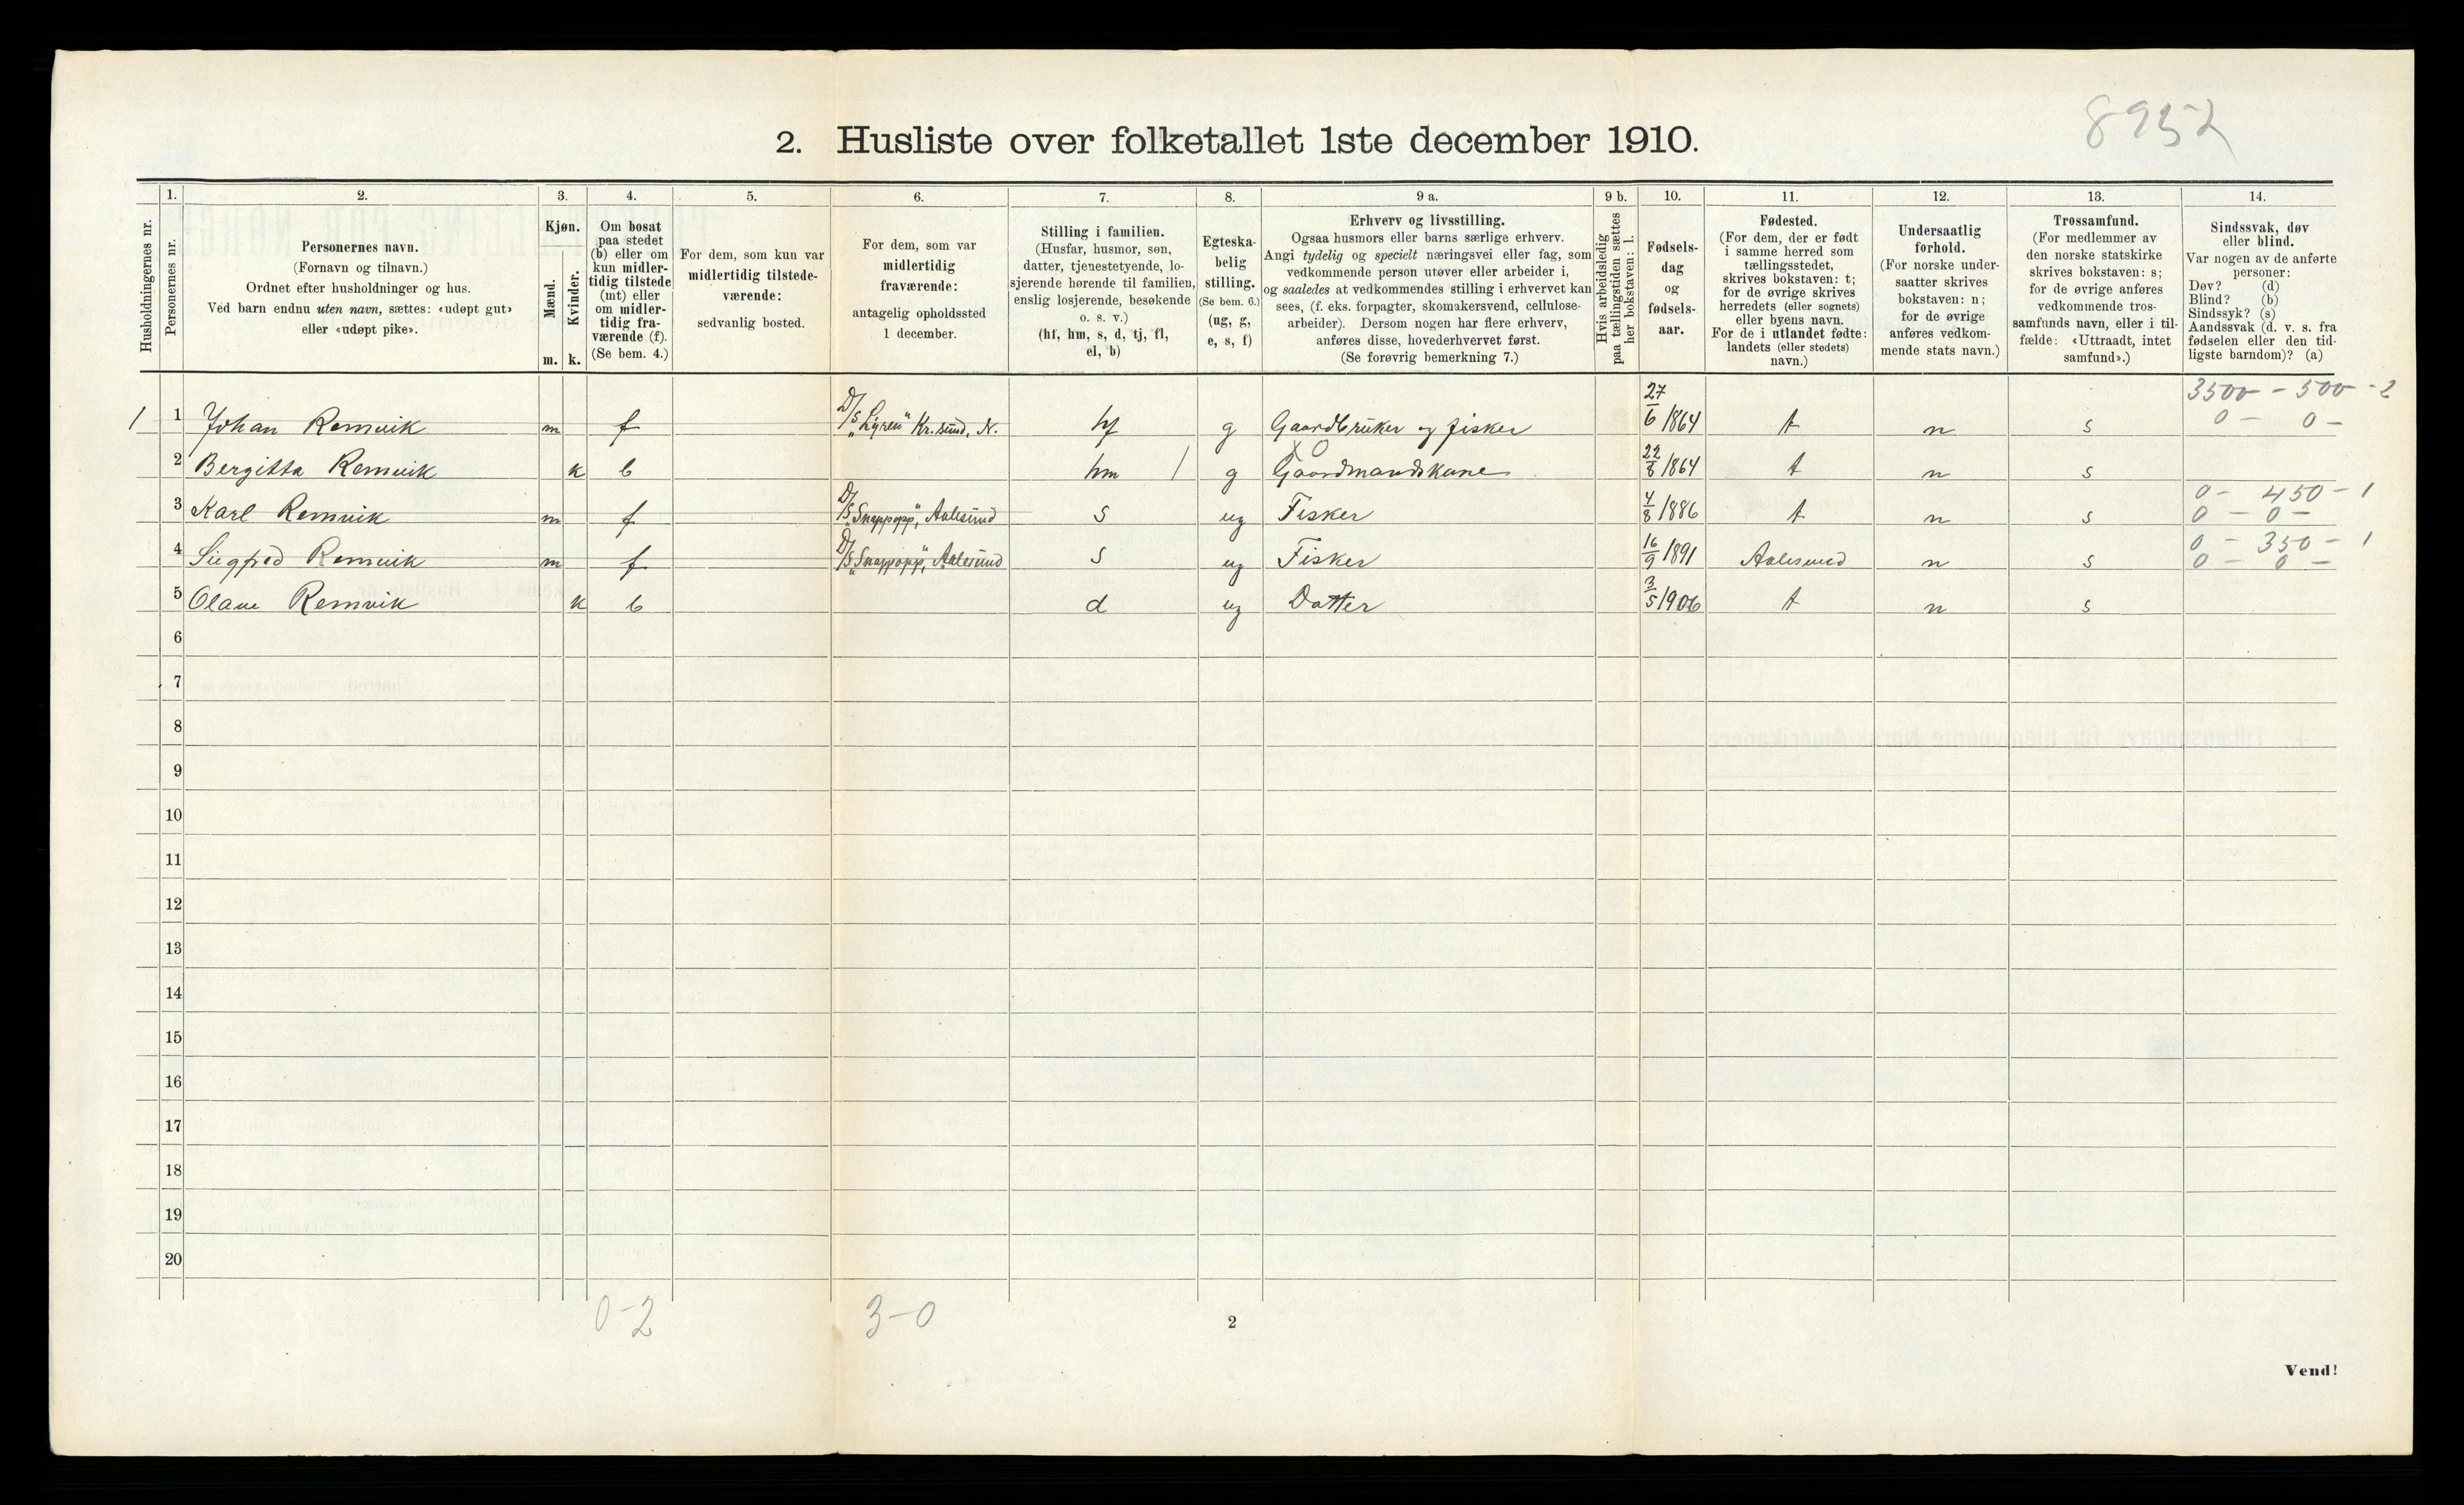 8952
2. Husliste over folketallet 1ste december 1910.
Husholdningernes nr.
1.
Personernes nr.
2.
Personernes navn.
(Fornavn og tilnavn.)
Ordnet efter husholdninger og hus.
Ved barn endnu uten navn, sættes: «udøpt gut»
eller «udøpt pike».
3.
Kjøn.
Mænd.
m.
Kvinder.
k.
4.
Om bosat
paa stedet
(b) eller om
kun midler-
tidig tilstede
(mt) eller
om midler-
tidig fra-
værende (f).
(Se bem. 4.)
5.
For dem, som kun var
midlertidig tilstede-
værende:
sedvanlig bosted.
6.
For dem, som var
midlertidig
fraværende:
antagelig opholdssted
1 december.
7.
Stilling i familien.
(Husfar, husmor, søn,
datter, tjenestetyende, lo-
sjerende hørende til familien,
enslig losjerende, besøkende
o. s. v.)
(hf, hm, s, d, tj, fl,
el, b)
8.
Egteska-
belig
stilling.
(Se bem. 6.)
(ug, g,
e, s, f)
9 a.
Erhverv og livsstilling.
Ogsaa husmors eller barns særlige erhverv.
Angi tydelig og specielt næringsvei eller fag, som
vedkommende person utøver eller arbeider i,
og saaledes at vedkommendes stilling i erhvervet kan
sees, (f. eks. forpagter, skomakersvend, cellulose-
arbeider). Dersom nogen har flere erhverv,
anføres disse, hovederhvervet først.
(Se forøvrig bemerkning 7.)
9 b.
Hvis arbeidsledig
paa tællingstiden sættes
her bokstaven: l.
10.
Fødsels-
dag
og
fødsels-
aar.
11.
Fødested.
(For dem, der er født
i samme herred som
tællingsstedet,
skrives bokstaven: t;
for de øvrige skrives
herredets (eller sognets)
eller byens navn.
For de i utlandet fødte:
landets (eller stedets)
navn.)
12.
Undersaatlig
forhold.
(For norske under-
saatter skrives
bokstaven: n;
for de øvrige
anføres vedkom-
mende stats navn.)
13.
Trossamfund.
(For medlemmer av
den norske statskirke
skrives bokstaven: s;
for de øvrige anføres
vedkommende tros-
samfunds navn, eller i til-
fælde: «Uttraadt, intet
samfund».)
14.
Sindssvak, døv
eller blind.
Var nogen av de anførte
personer:
Døv? (d)
Blind? (b)
Sindssyk? (s)
Aandssvak (d. v. s. fra
fødselen eller den tid-
ligste barndom)? (a)
3500 - 500 - 2
1 1 Johan Remvik m f D/S "Lyren" Kr.sund, N. hf g Gaardbruker og fisker 27/6 1864 t n s 0 - 0 -
X 0
2 Bergitta Remvik k b hm / g Gaardmandskone 22/8 1864 t n s
0 - 450 - 1
3 Karl Remvik m f D/S "Snappopp", Aalesund s ug Fisker 4/8 1886 t n s 0 - 0 -
0 - 350 - 1
4 Sigfred Remvik m f D/S "Snappopp", Aalesund s ug Fisker 16/9 1891 Aalesund n s 0 - 0 -
5 Olave Remvik k b d ug Datter 3/5 1906 t n s
6
7
8
9
10
11
12
13
14
15
16
17
18
19
20
0-2 3-0
2
Vend!